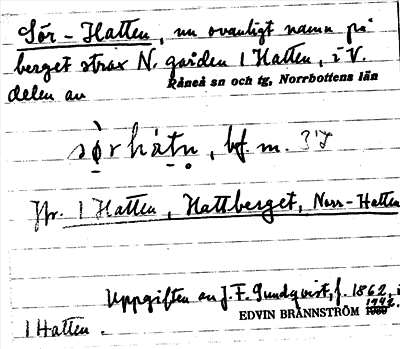 Sör-Hatten, nu ovanligt namn på
berget strax N. gården 1 Hatten, i V.
delen av Råneå sn och tg, Norrbottens län
sọ̀rhàtṇ, bf. m.
Jfr. 1 Hatten, Hattberget, Norr-Hatten
Uppgiften av J. F. Sundqvist, f. 1862, i
1 Hatten. EDVIN BRÄNNSTRÖM 1942.